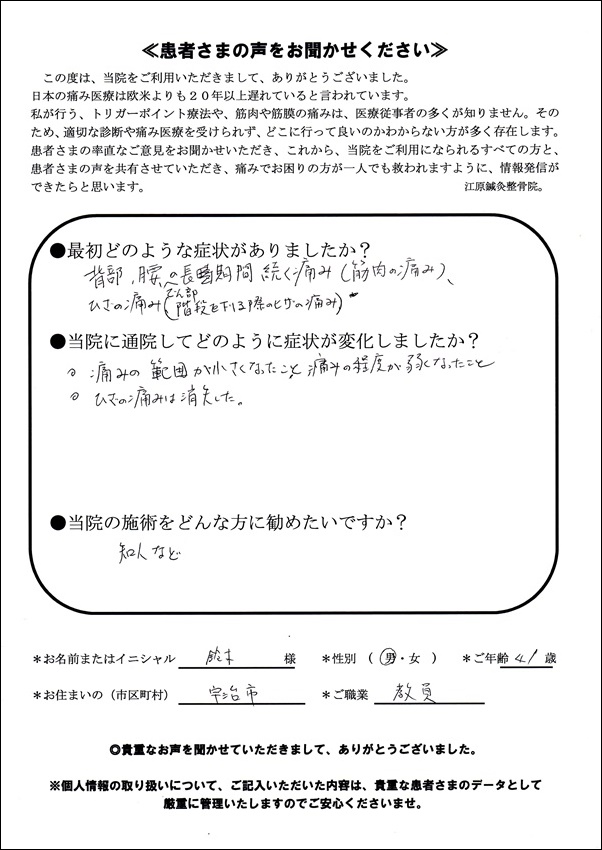 ≪患者さまの声をお聞かせください≫
この度は、当院をご利用いただきまして、ありがとうございました。
日本の痛み医療は欧米よりも２０年以上遅れていると言われています。
私が行う、トリガーポイント療法や、筋肉や筋膜の痛みは、医療従事者の多くが知りません。その
ため、適切な診断や痛み医療を受けられず、どこに行って良いのかわからない方が多く存在します。
患者さまの率直なご意見をお聞かせいただき、これから、当院をご利用になられるすべての方と、
患者さまの声を共有させていただき、痛みでお困りの方が一人でも救われますように、情報発信が
できたらと思います。
江原鍼灸整骨院。
●最初どのような症状がありましたか？
背部、腰、の長期間続く痛み（筋肉の痛み）、
でん部
ひざの痛み（階段を下りる際のヒザの痛み）
●当院に通院してどのように症状が変化しましたか？
◎ 痛みの範囲が小さくなったこと、痛みの程度が弱くなったこと
◎ ひざの痛みは消失した。
●当院の施術をどんな方に勧めたいですか？
知人など
＊お名前またはイニシャル 鈴木 様 ＊性別（ 男・女 ） ＊ご年齢 41 歳
＊お住まいの（市区町村） 宇治市 ＊ご職業 教員
◎貴重なお声を聞かせていただきまして、ありがとうございました。
※個人情報の取り扱いについて、ご記入いただいた内容は、貴重な患者さまのデータとして
厳重に管理いたしますのでご安心くださいませ。